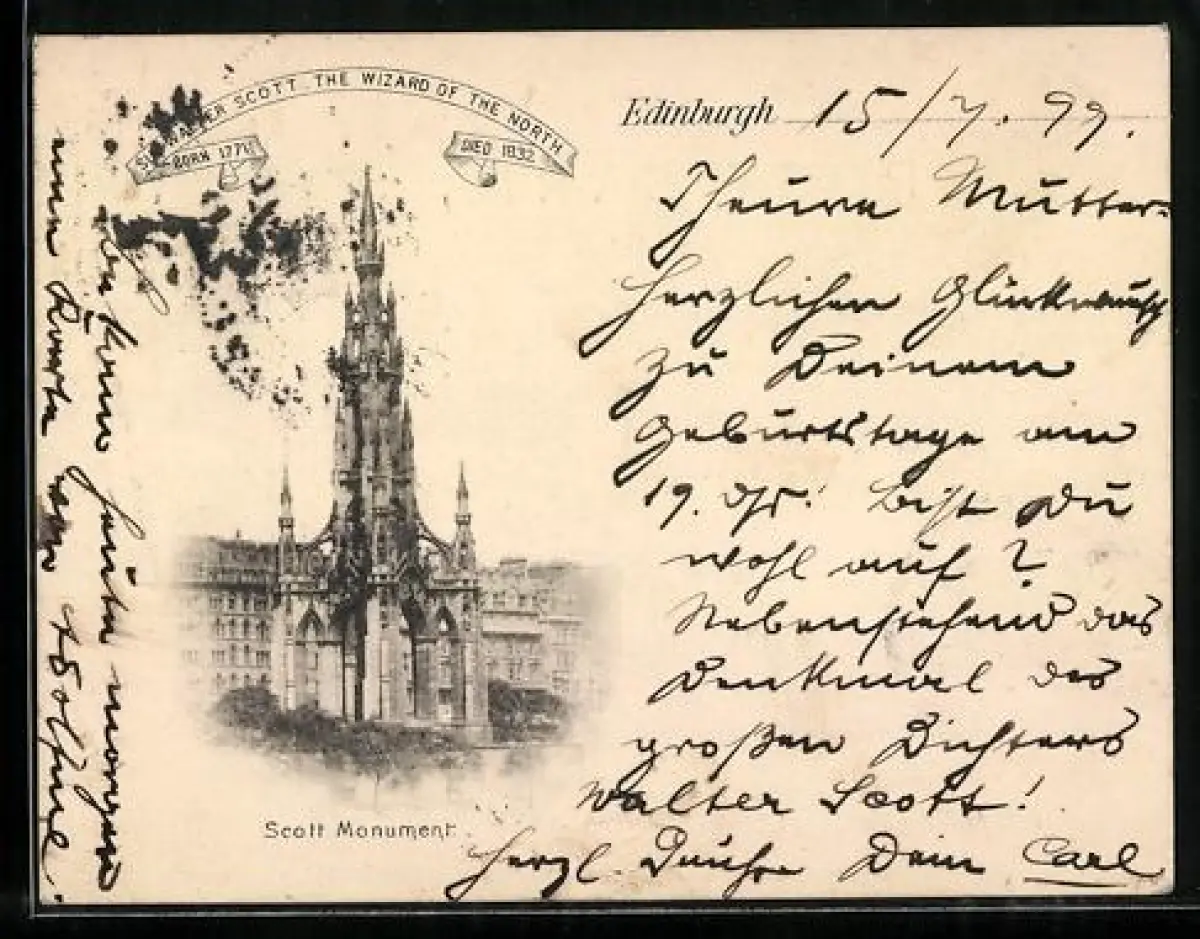 SIR WALTER SCOTT THE WIZARD OF THE NORTH
BORN 1771
DIED 1832
Edinburgh 15/7. 99.
Theure Mutter-
herzlichen Glückwunsch
zu Deinem
Geburtstage am
19. ds! bist Du
wohl auf?
Nebenstehend das
Denkmal des
großen Dichters
Walter Scott!
herzl. Dein Carl
Scott Monument
heute morgen
Karte von